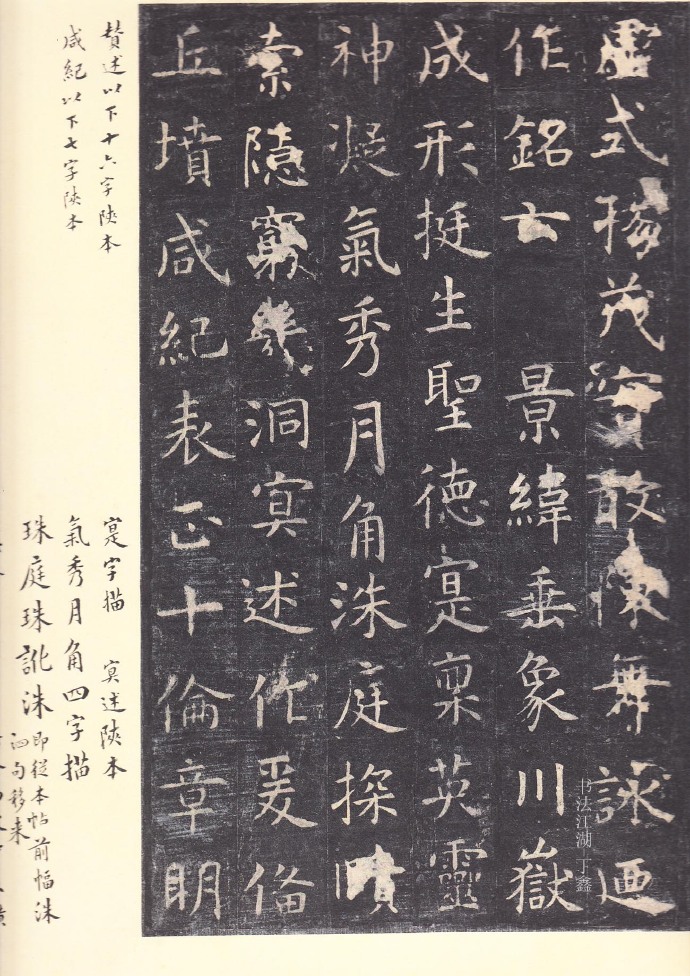 虛式揚茂實敢陳舞詠迺
作銘云 景緯垂象川嶽
成形挺生聖德寔稟英靈
神凝氣秀月角洙庭探賾
索隱窮幾洞冥述作爰俻
丘墳咸紀表正十倫章明
书法江湖 丁鑫
贊述以下十六字陝本
咸紀以下七字陝本
寔字描 冥述陝本
氣秀月角四字描
珠庭珠訛洙即從本帖前幅洙
泗句移来